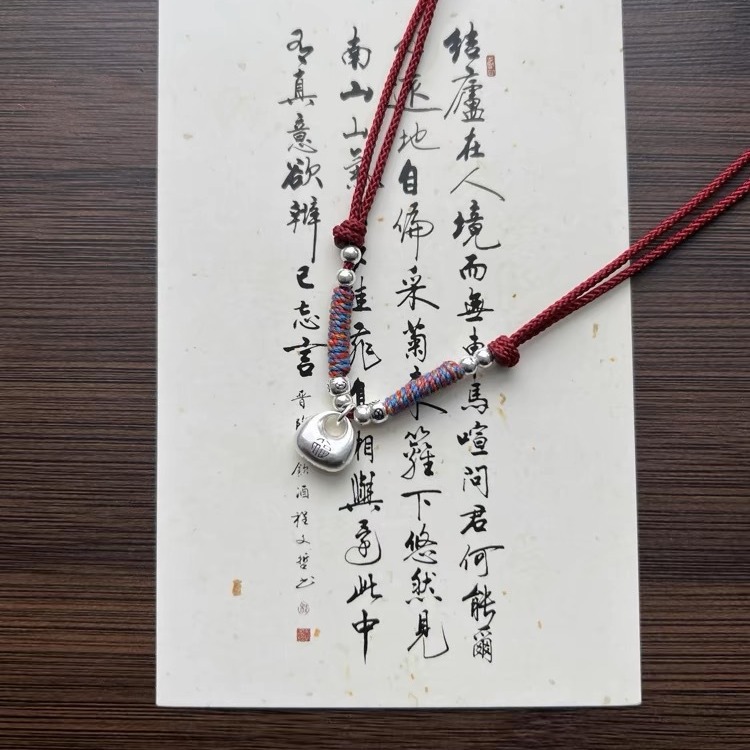 結廬在人境而無馬喧問君何能爾
遠地自偏采菊籬下悠然見
南山山氣佳飛相與還此中
有真意欲辨已忘言
晋 飲酒程文哲书
福